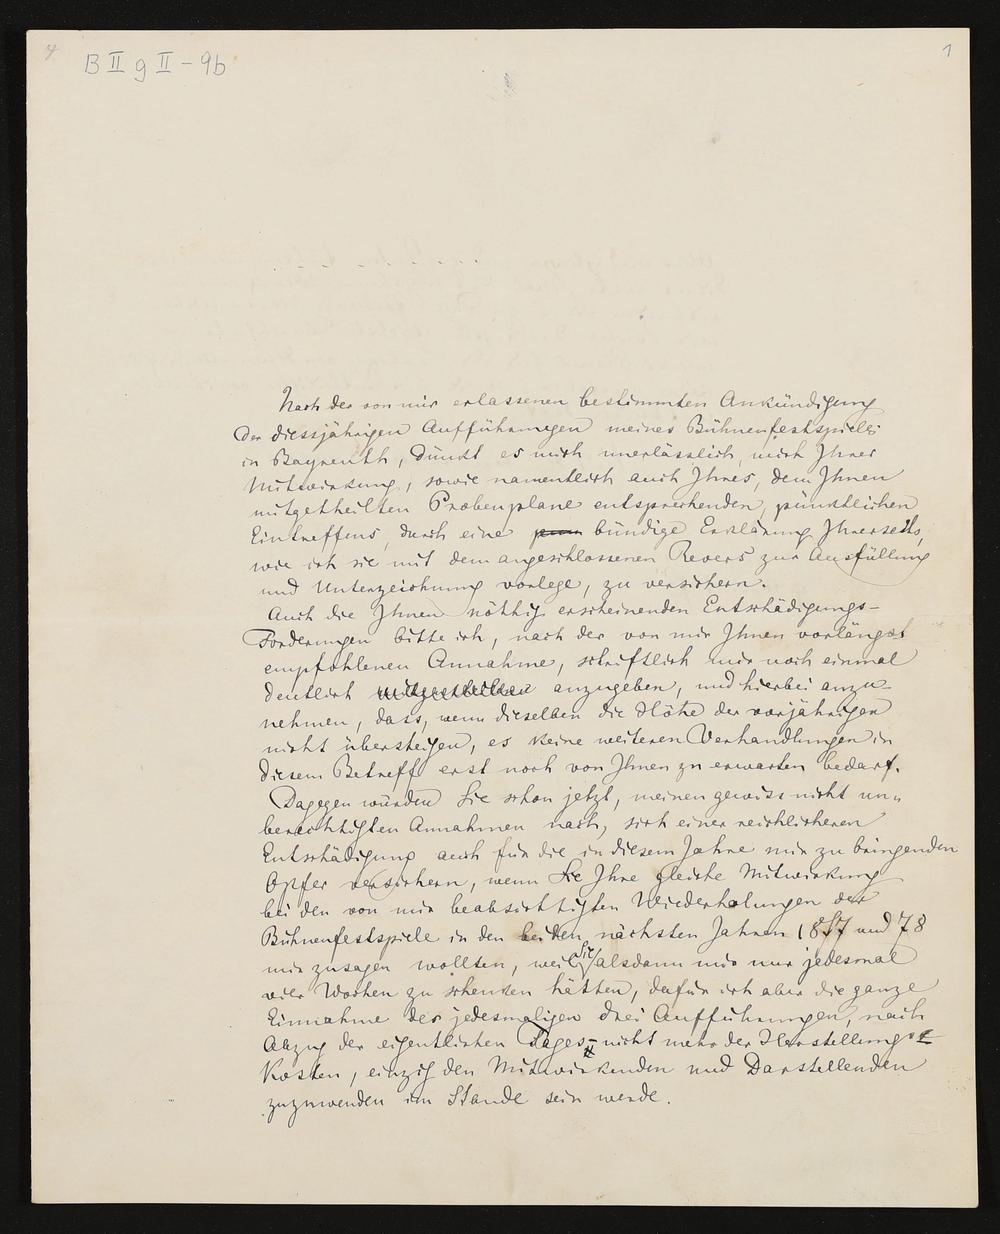 4
B II g II - 9b
1
Nach der von mir erlassenen bestimmten Ankündigung
der diessjährigen Aufführungen meines Bühnenfestspieles
in Bayreuth, dünkt es mich unerlässlich, mich Ihrer
Mitwirkung, sowie namentlich auch Ihres, dem Ihnen
mitgetheilten Probenplane entsprechenden, pünktlichen
Eintreffens, durch eine bündige Erklärung Ihrerseits,
wie ich sie mit dem angeschlossenen Revers zur Ausfüllung
und Unterzeichnung vorlege, zu versichern.
Auch die Ihnen nöthig erscheinenden Entschädigungs-
Forderungen bitte ich, nach der von mir Ihnen vorlängst
empfohlenen Annahme, schriftlich mir noch einmal
deutlich mitzutheilen anzugeben, und hierbei anzu-
nehmen, dass, wenn dieselben die Höhe der vorjährigen
nicht übersteigen, es keine weiteren Verhandlungen in
diesem Betreff erst noch von Ihnen zu erwarten bedarf.
Dagegen würden Sie schon jetzt, meinen gewiss nicht un-
berechtigten Annahmen nach, sich einer reichlicheren
Entschädigung auch für die in diesem Jahre mir zu bringenden
Opfer versichern, wenn Sie Ihre gleiche Mitwirkung
bei den von mir beabsichtigten Wiederholungen der
Bühnenfestspiele in den beiden nächsten Jahren 1877 und 78
mir zusagen wollten, weil Sie alsdann mir nur jedesmal
vier Wochen zu schenken hätten, dafür ich aber die ganze
Einnahme der jedesmaligen drei Aufführungen, nach
Abzug der eigentlichen Tages- nicht mehr der Herstellungs-
Kosten, einzig den Mitwirkenden und Darstellenden
zuzuwenden im Stande sein werde.